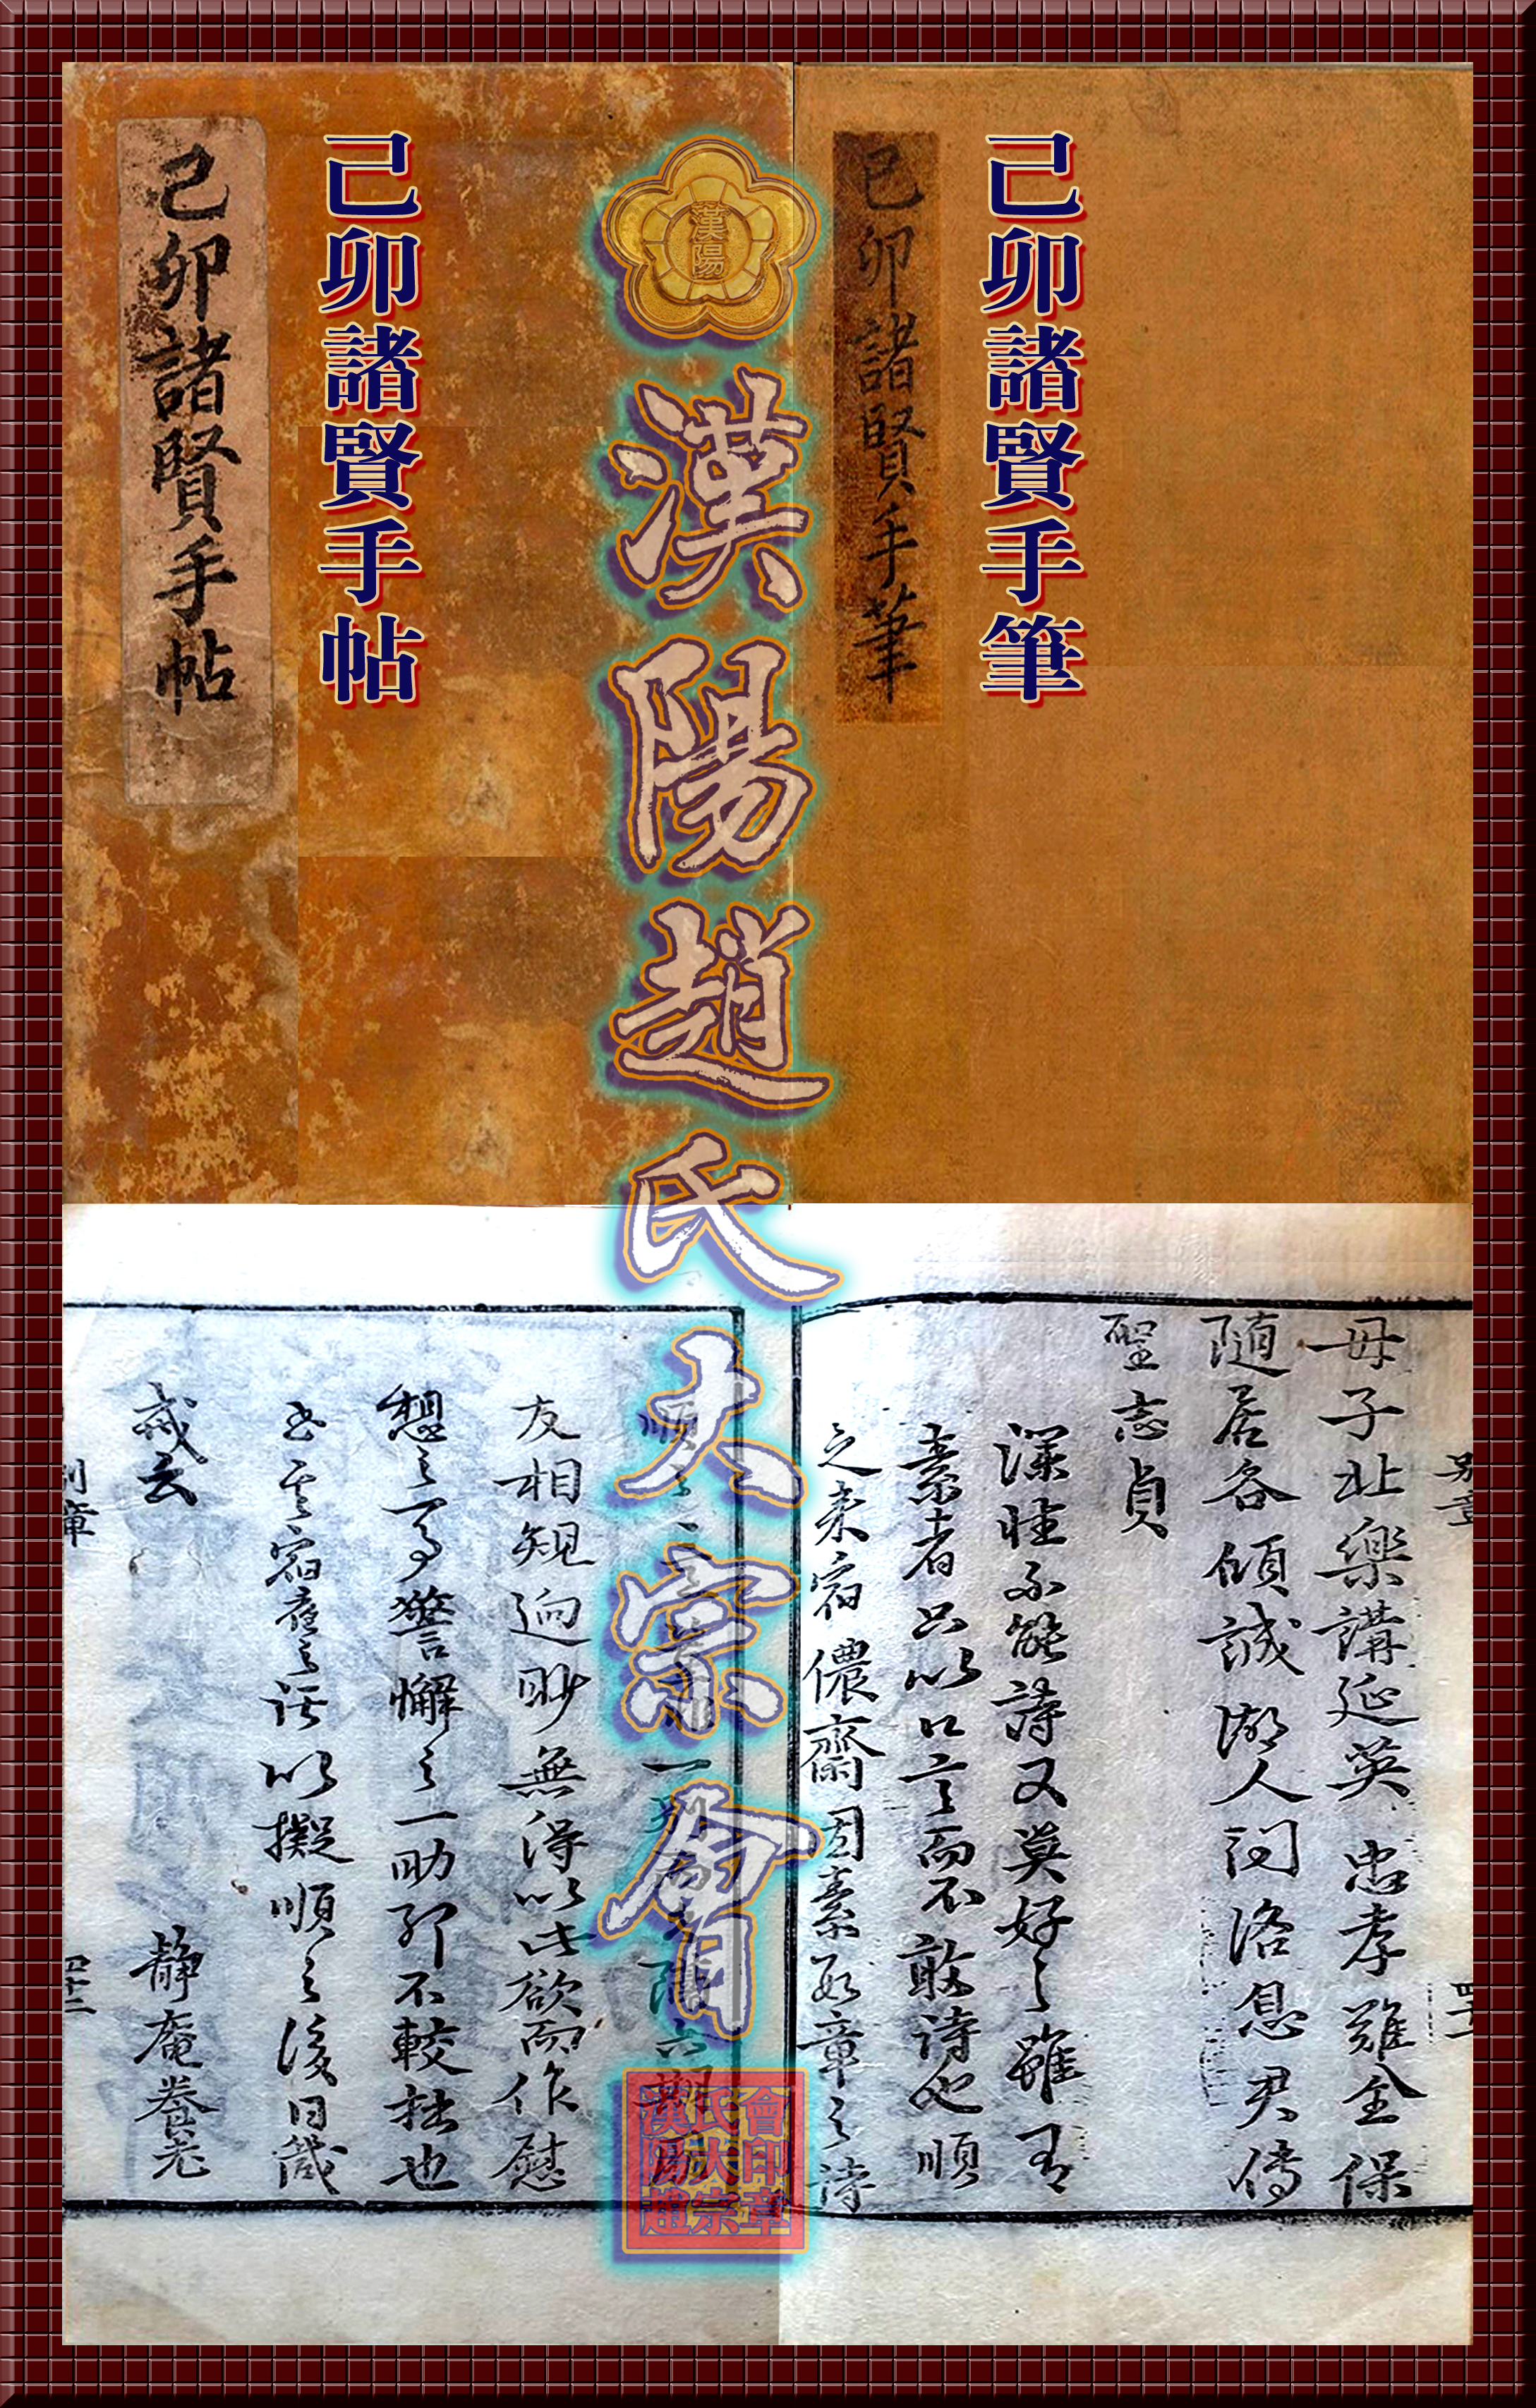 己卯諸賢手筆
己卯諸賢手筆
漢陽
漢陽趙氏大宗會
己卯諸賢手帖
己卯諸賢手帖
別章
四十一
母子北樂講延英忠孝難全保
隨居各傾誠湖人詞洛息君傳
聖志貞
深性不能詩又莫好之雖有
素者只以口言而不敢詩也順
之來宿儂齋因素段章之詩
友相規迫眇無得以此欲而作慰
想之警懈之一助耶不較拙也
宿在之活以擬順之後日箴
戒云 靜庵養老
別章
四十二
會印章
氏大宗
漢陽趙